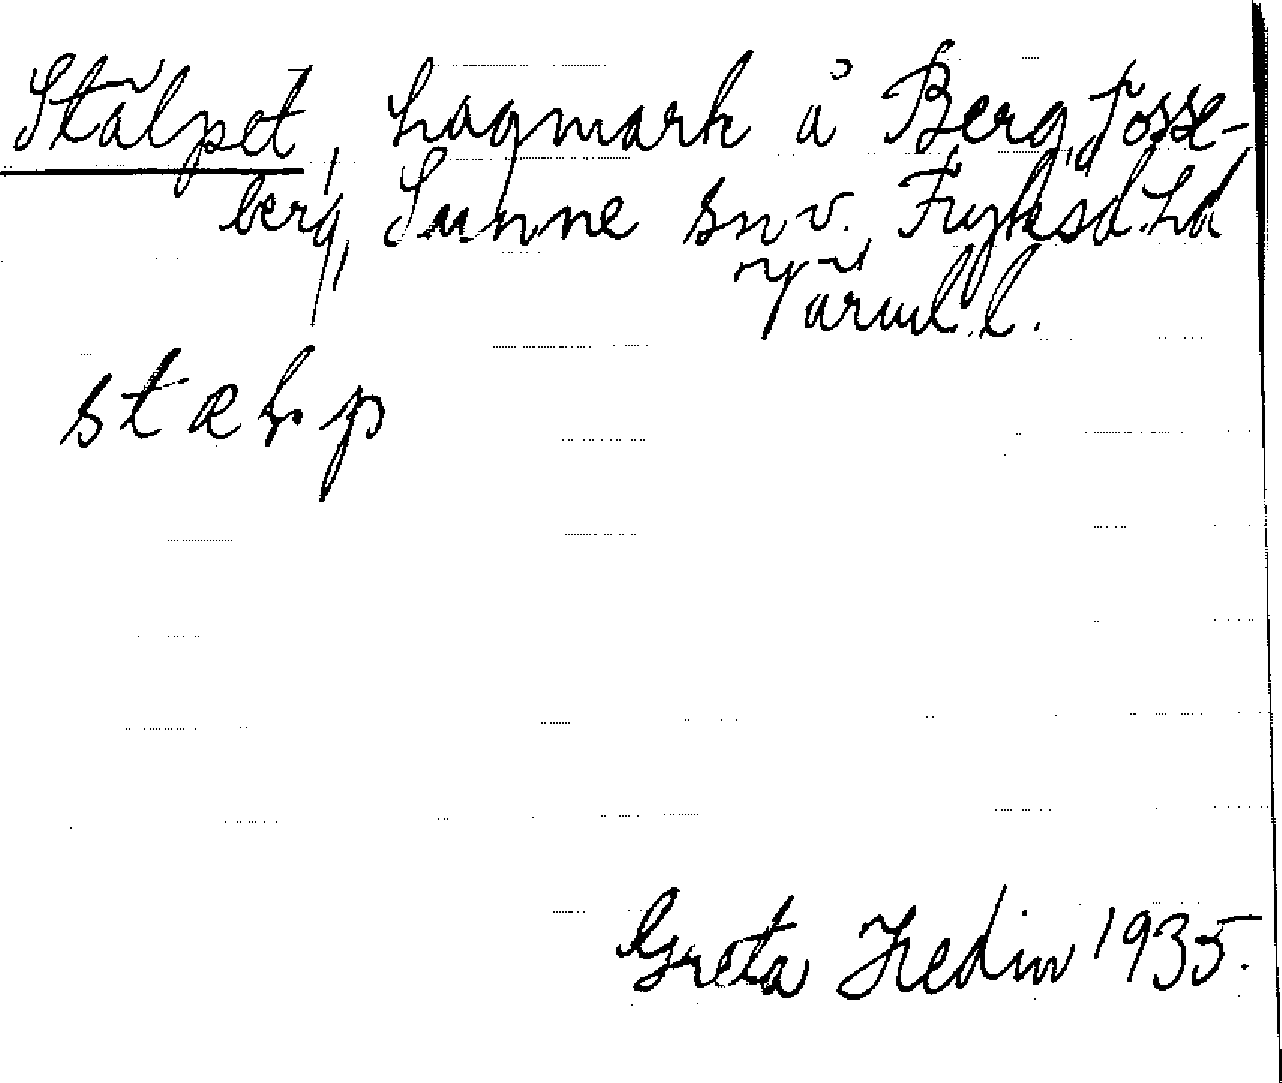 Stälpet, hagmark å Berg, Tosse-
berg, Sunne sn v., Fryksd. hd
Värml. l.
stæl̥p
Greta Hedin 1935.